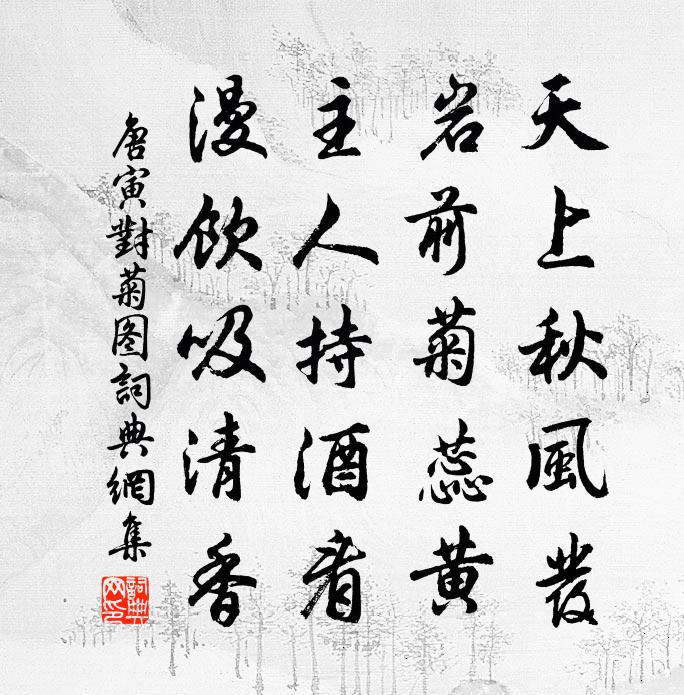 天上秋風發
岩前菊蕊黄
主人持酒看
漫飲吸清香
唐寅對菊图詞典網集
詞典網印